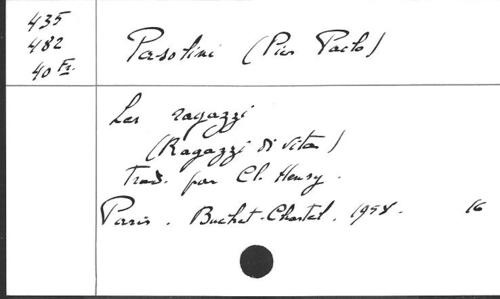 435
482
40 Fr.
Pasolini (Pier Paolo)
Les ragazzi
(Ragazzi di vita)
Trad. par Cl. Henry.
Paris. Buchet-Chastel. 1958. 16